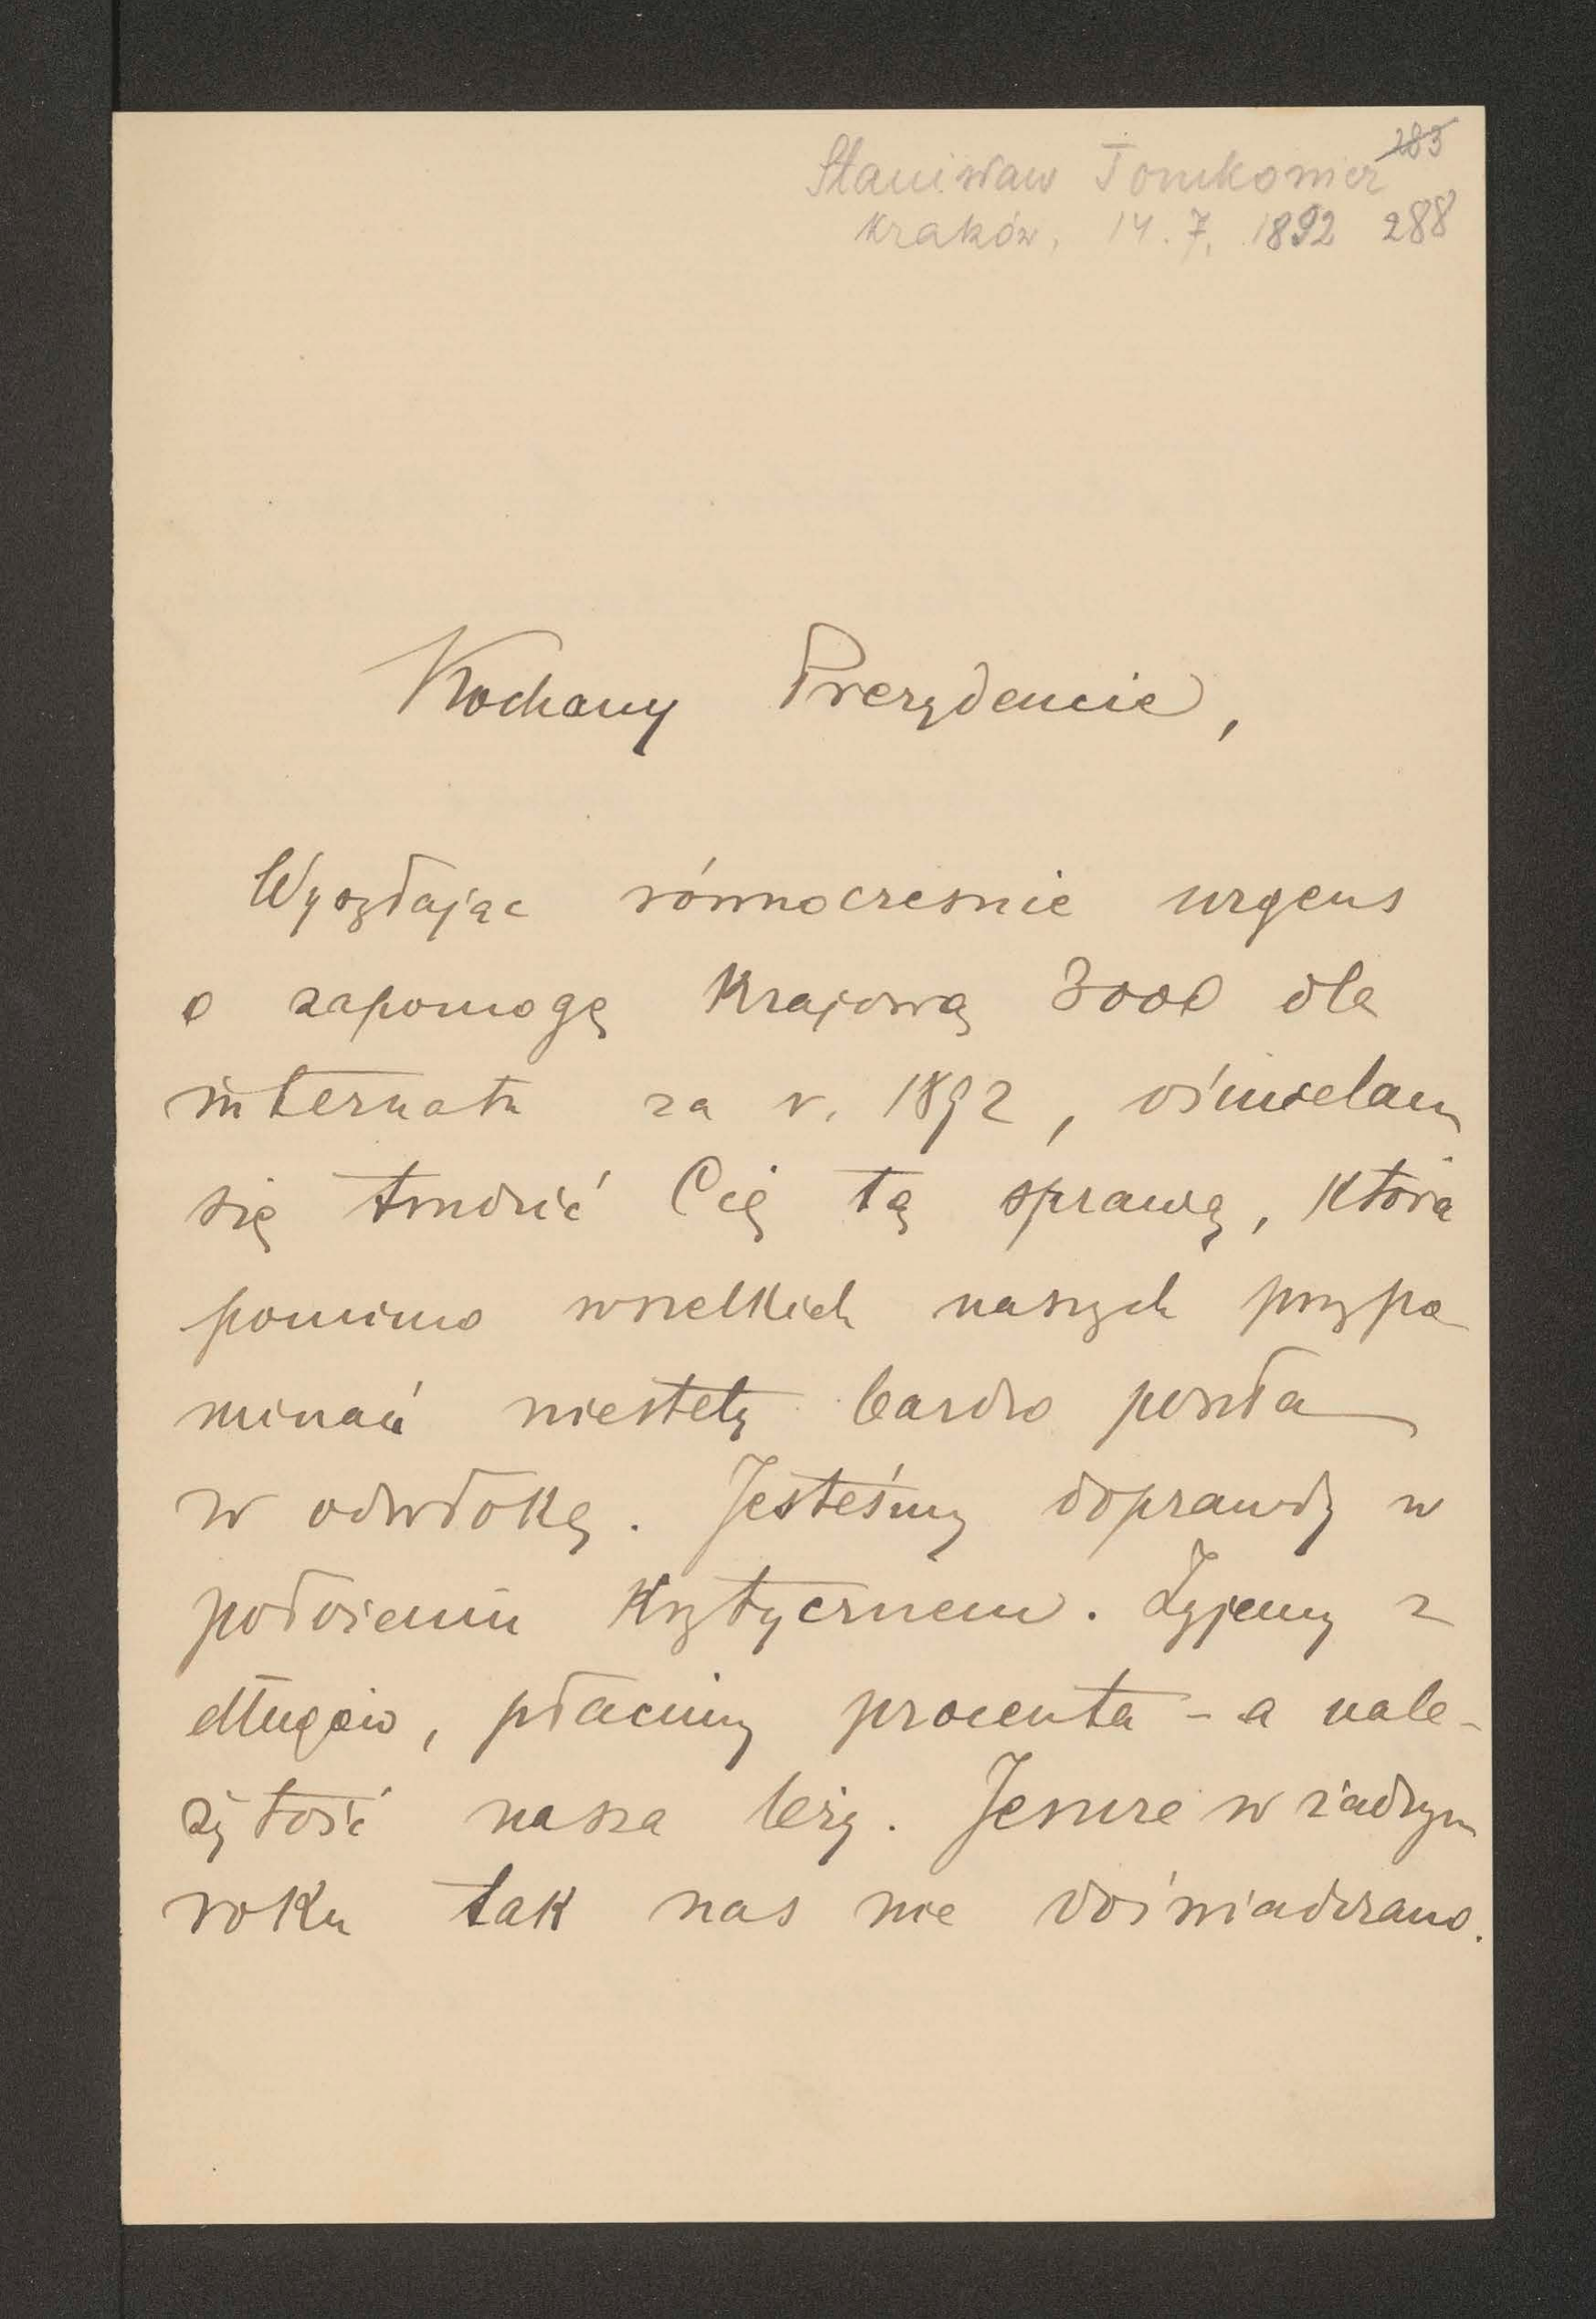 283
Stanisław Tomkowicz
Kraków, 14.7.1892 288
Kochany Prezydencie,
Wysyłając równocześnie urgens
o zapomogę krajową 3000 dla
internatu za r. 1892, ośmielam
się trudzić Cię tą sprawą, która
pomimo wszelkich naszych przypo-
minań niestety bardzo poszła
w odwłokę. Jesteśmy doprawdy w
położeniu krytycznem. Żyjemy z
długów, płacimy procenta - a nale-
żytość nasza leży. Jeszcze w żadnym
roku tak nas nie doświadczano.